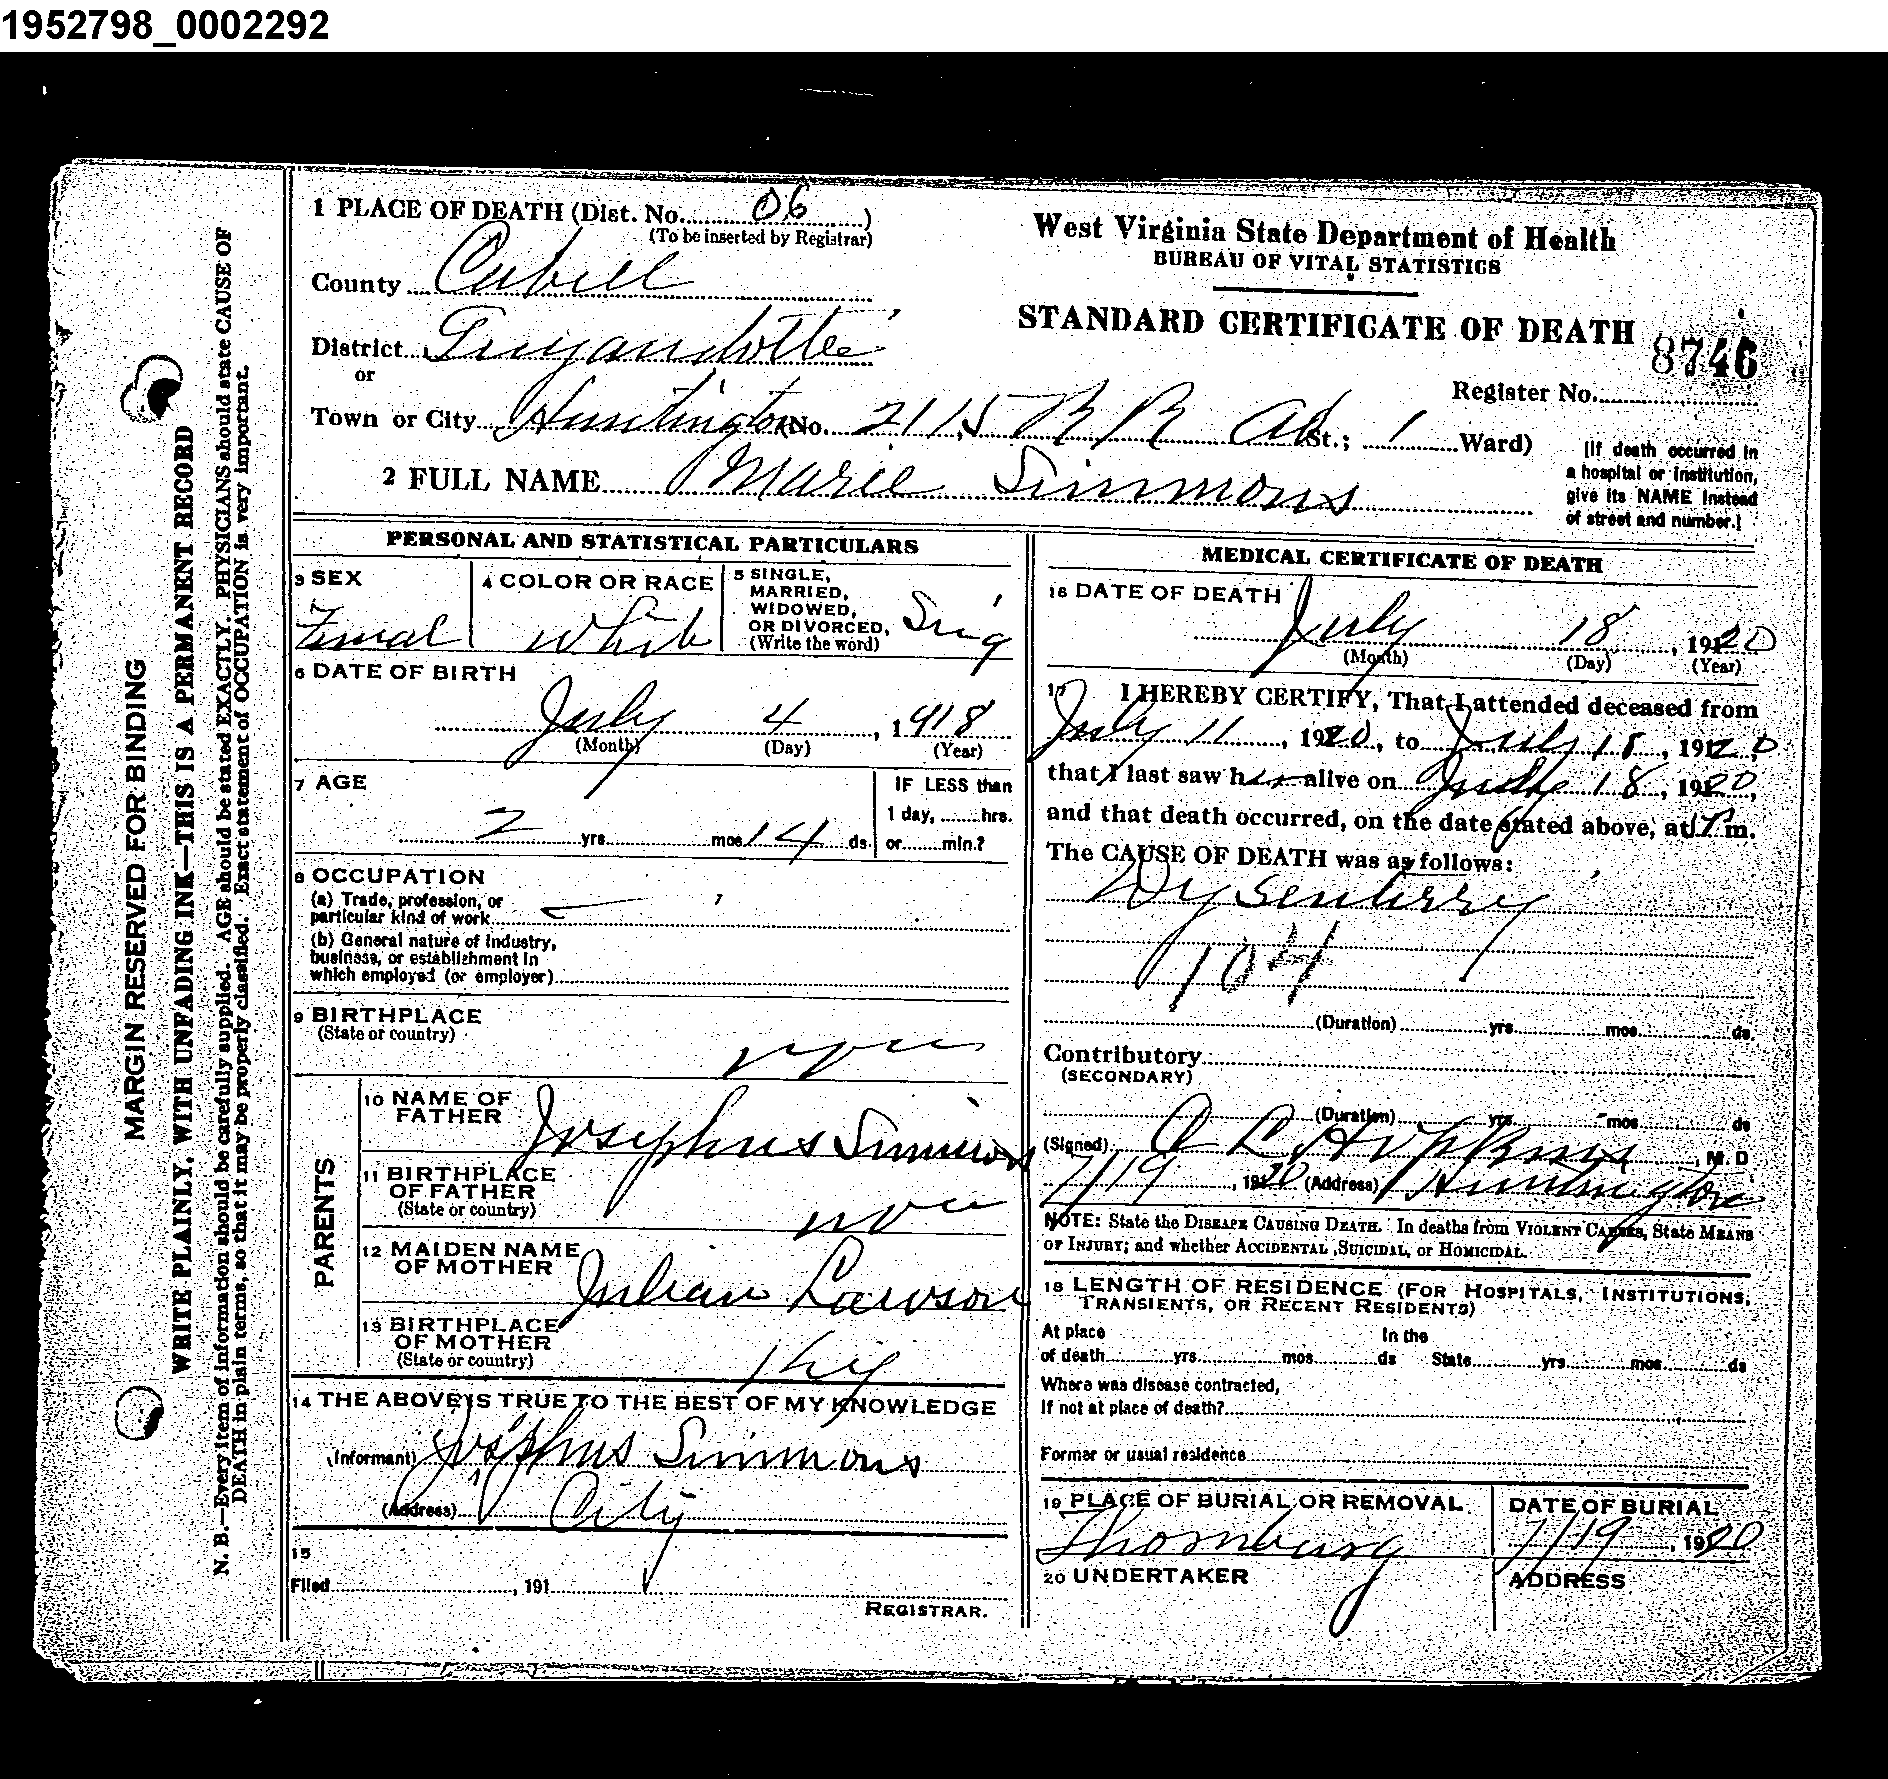 1952798_0002292
1 PLACE OF DEATH (Dist. No. 06 )
(To be inserted by Registrar)
County Cabell
District Guyandotte
or
Town or City Huntington (No. 2115 R R St.; 1 Ward)
2 FULL NAME Marie Simmons
West Virginia State Department of Health
BUREAU OF VITAL STATISTICS
STANDARD CERTIFICATE OF DEATH
8746
Register No.
[If death occurred in
a hospital or institution,
give its NAME instead
of street and number.]
MARGIN RESERVED FOR BINDING
WRITE PLAINLY, WITH UNFADING INK—THIS IS A PERMANENT RECORD
N. B.—Every item of information should be carefully supplied. AGE should be stated EXACTLY. PHYSICIANS should state CAUSE OF
DEATH in plain terms, so that it may be properly classified. Exact statement of OCCUPATION is very important.
PERSONAL AND STATISTICAL PARTICULARS
3 SEX
Femal
4 COLOR OR RACE
White
5 SINGLE,
MARRIED,
WIDOWED,
OR DIVORCED,
(Write the word)
Sing
6 DATE OF BIRTH
July 4, 1918
(Month) (Day) (Year)
7 AGE
2 yrs. mos 14 ds.
IF LESS than
1 day, hrs.
or min.?
8 OCCUPATION
(a) Trade, profession, or
particular kind of work
(b) General nature of industry,
business, or establishment in
which employed (or employer)
9 BIRTHPLACE
(State or country)
PARENTS
10 NAME OF
FATHER
Josephus Simmons
11 BIRTHPLACE
OF FATHER
(State or country)
12 MAIDEN NAME
OF MOTHER
Julian Lawson
13 BIRTHPLACE
OF MOTHER
(State or country)
Ky
14 THE ABOVE IS TRUE TO THE BEST OF MY KNOWLEDGE
(Informant) Josephus Simmons
(Address) City
15
Filed , 191
REGISTRAR.
MEDICAL CERTIFICATE OF DEATH
16 DATE OF DEATH
July 18, 1920
(Month) (Day) (Year)
17 I HEREBY CERTIFY, That I attended deceased from
July 11, 1920, to July 18, 1920
that I last saw her alive on July 18, 1920,
and that death occurred, on the date stated above, at m.
The CAUSE OF DEATH was as follows:
Dysenterry
104
(Duration) yrs. mos. ds.
Contributory
(SECONDARY)
(Duration) yrs. mos. ds
(Signed) O L Hopkins, M.D
7/19, 1920 (Address) Huntington
NOTE: State the DISEASE CAUSING DEATH. In deaths from VIOLENT CAUSES, State MEANS
OF INJURY; and whether ACCIDENTAL, SUICIDAL, or HOMICIDAL.
18 LENGTH OF RESIDENCE (FOR HOSPITALS, INSTITUTIONS,
TRANSIENTS, OR RECENT RESIDENTS)
At place In the
of death yrs. mos. ds State yrs. mos. ds
Where was disease contracted,
If not at place of death?
Former or usual residence
19 PLACE OF BURIAL OR REMOVAL
Thornburg
DATE OF BURIAL
7/19, 1920
20 UNDERTAKER
ADDRESS